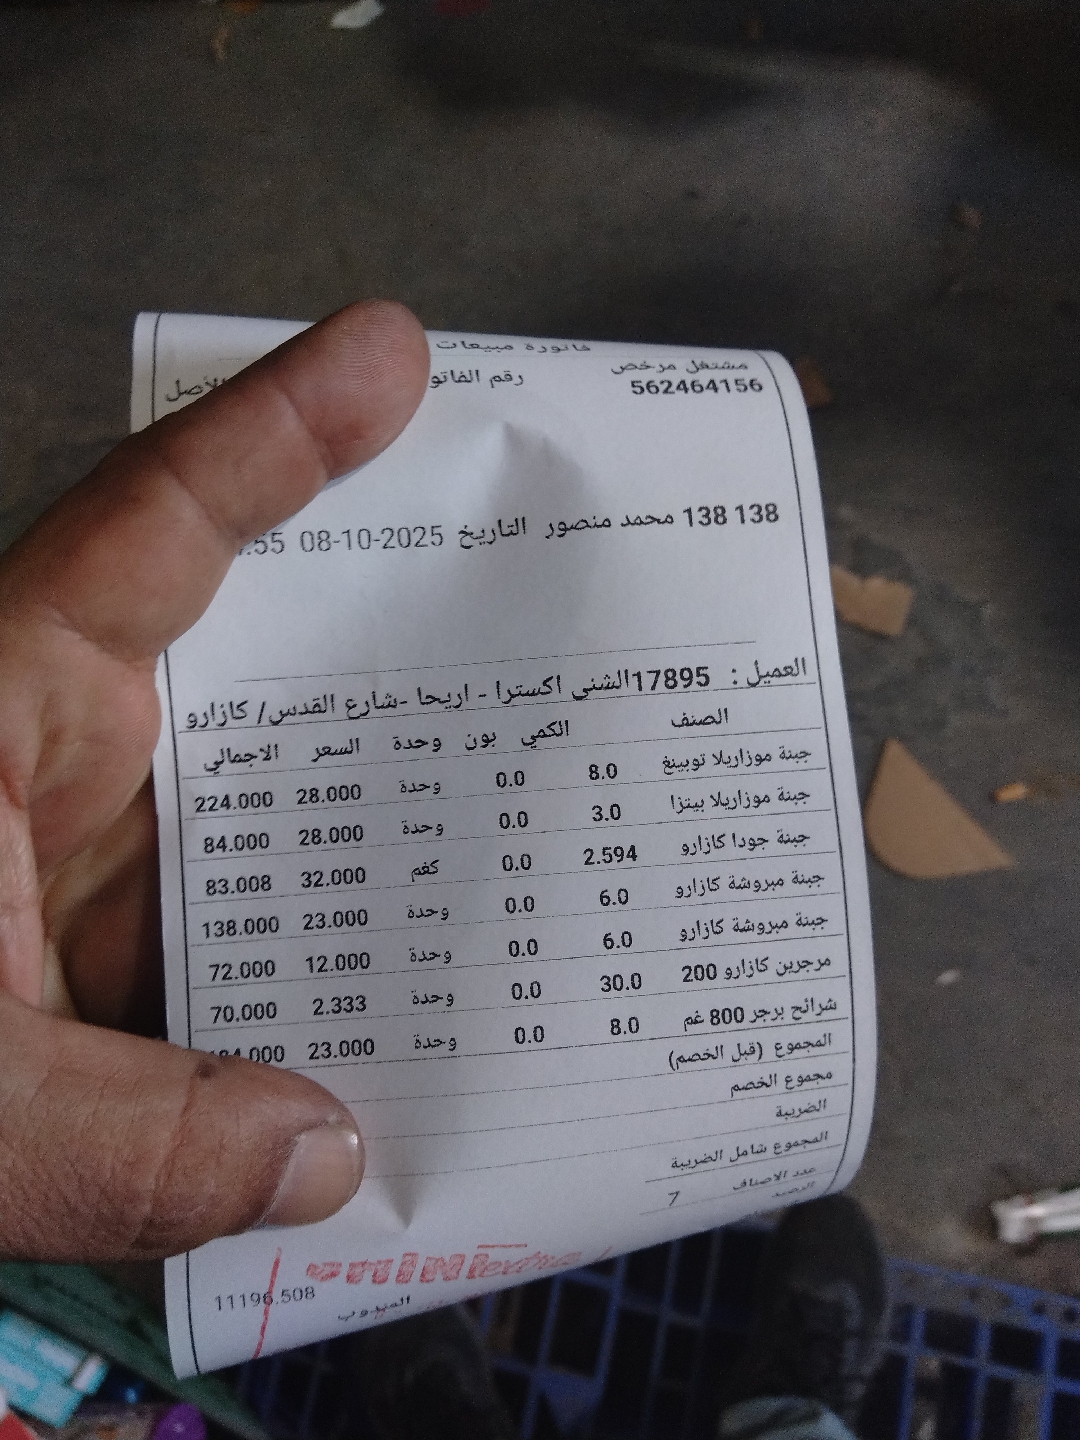 فاتورة مبيعات
مشتغل مرخص رقم الفاتو الأصل
562464156
138 138 محمد منصور التاريخ 08-10-2025 55
العميل : 17895الشني اكسترا - اريحا -شارع القدس/ كازارو
الصنف الكمي بون وحدة السعر الاجمالي
جبنة موزاريلا توبينغ 8.0 0.0 وحدة 28.000 224.000
جبنة موزاريلا بيتزا 3.0 0.0 وحدة 28.000 84.000
جبنة جودا كازارو 2.594 0.0 كغم 32.000 83.008
جبنة مبروشة كازارو 6.0 0.0 وحدة 23.000 138.000
جبنة مبروشة كازارو 6.0 0.0 وحدة 12.000 72.000
مرجرين كازارو 200 30.0 0.0 وحدة 2.333 70.000
شرائح برجر 800 غم 8.0 0.0 وحدة 23.000
المجموع (قبل الخصم)
مجموع الخصم
الضريبة
المجموع شامل الضريبة
عدد الاصناف 7
الرصيد
11196.508
المندوب